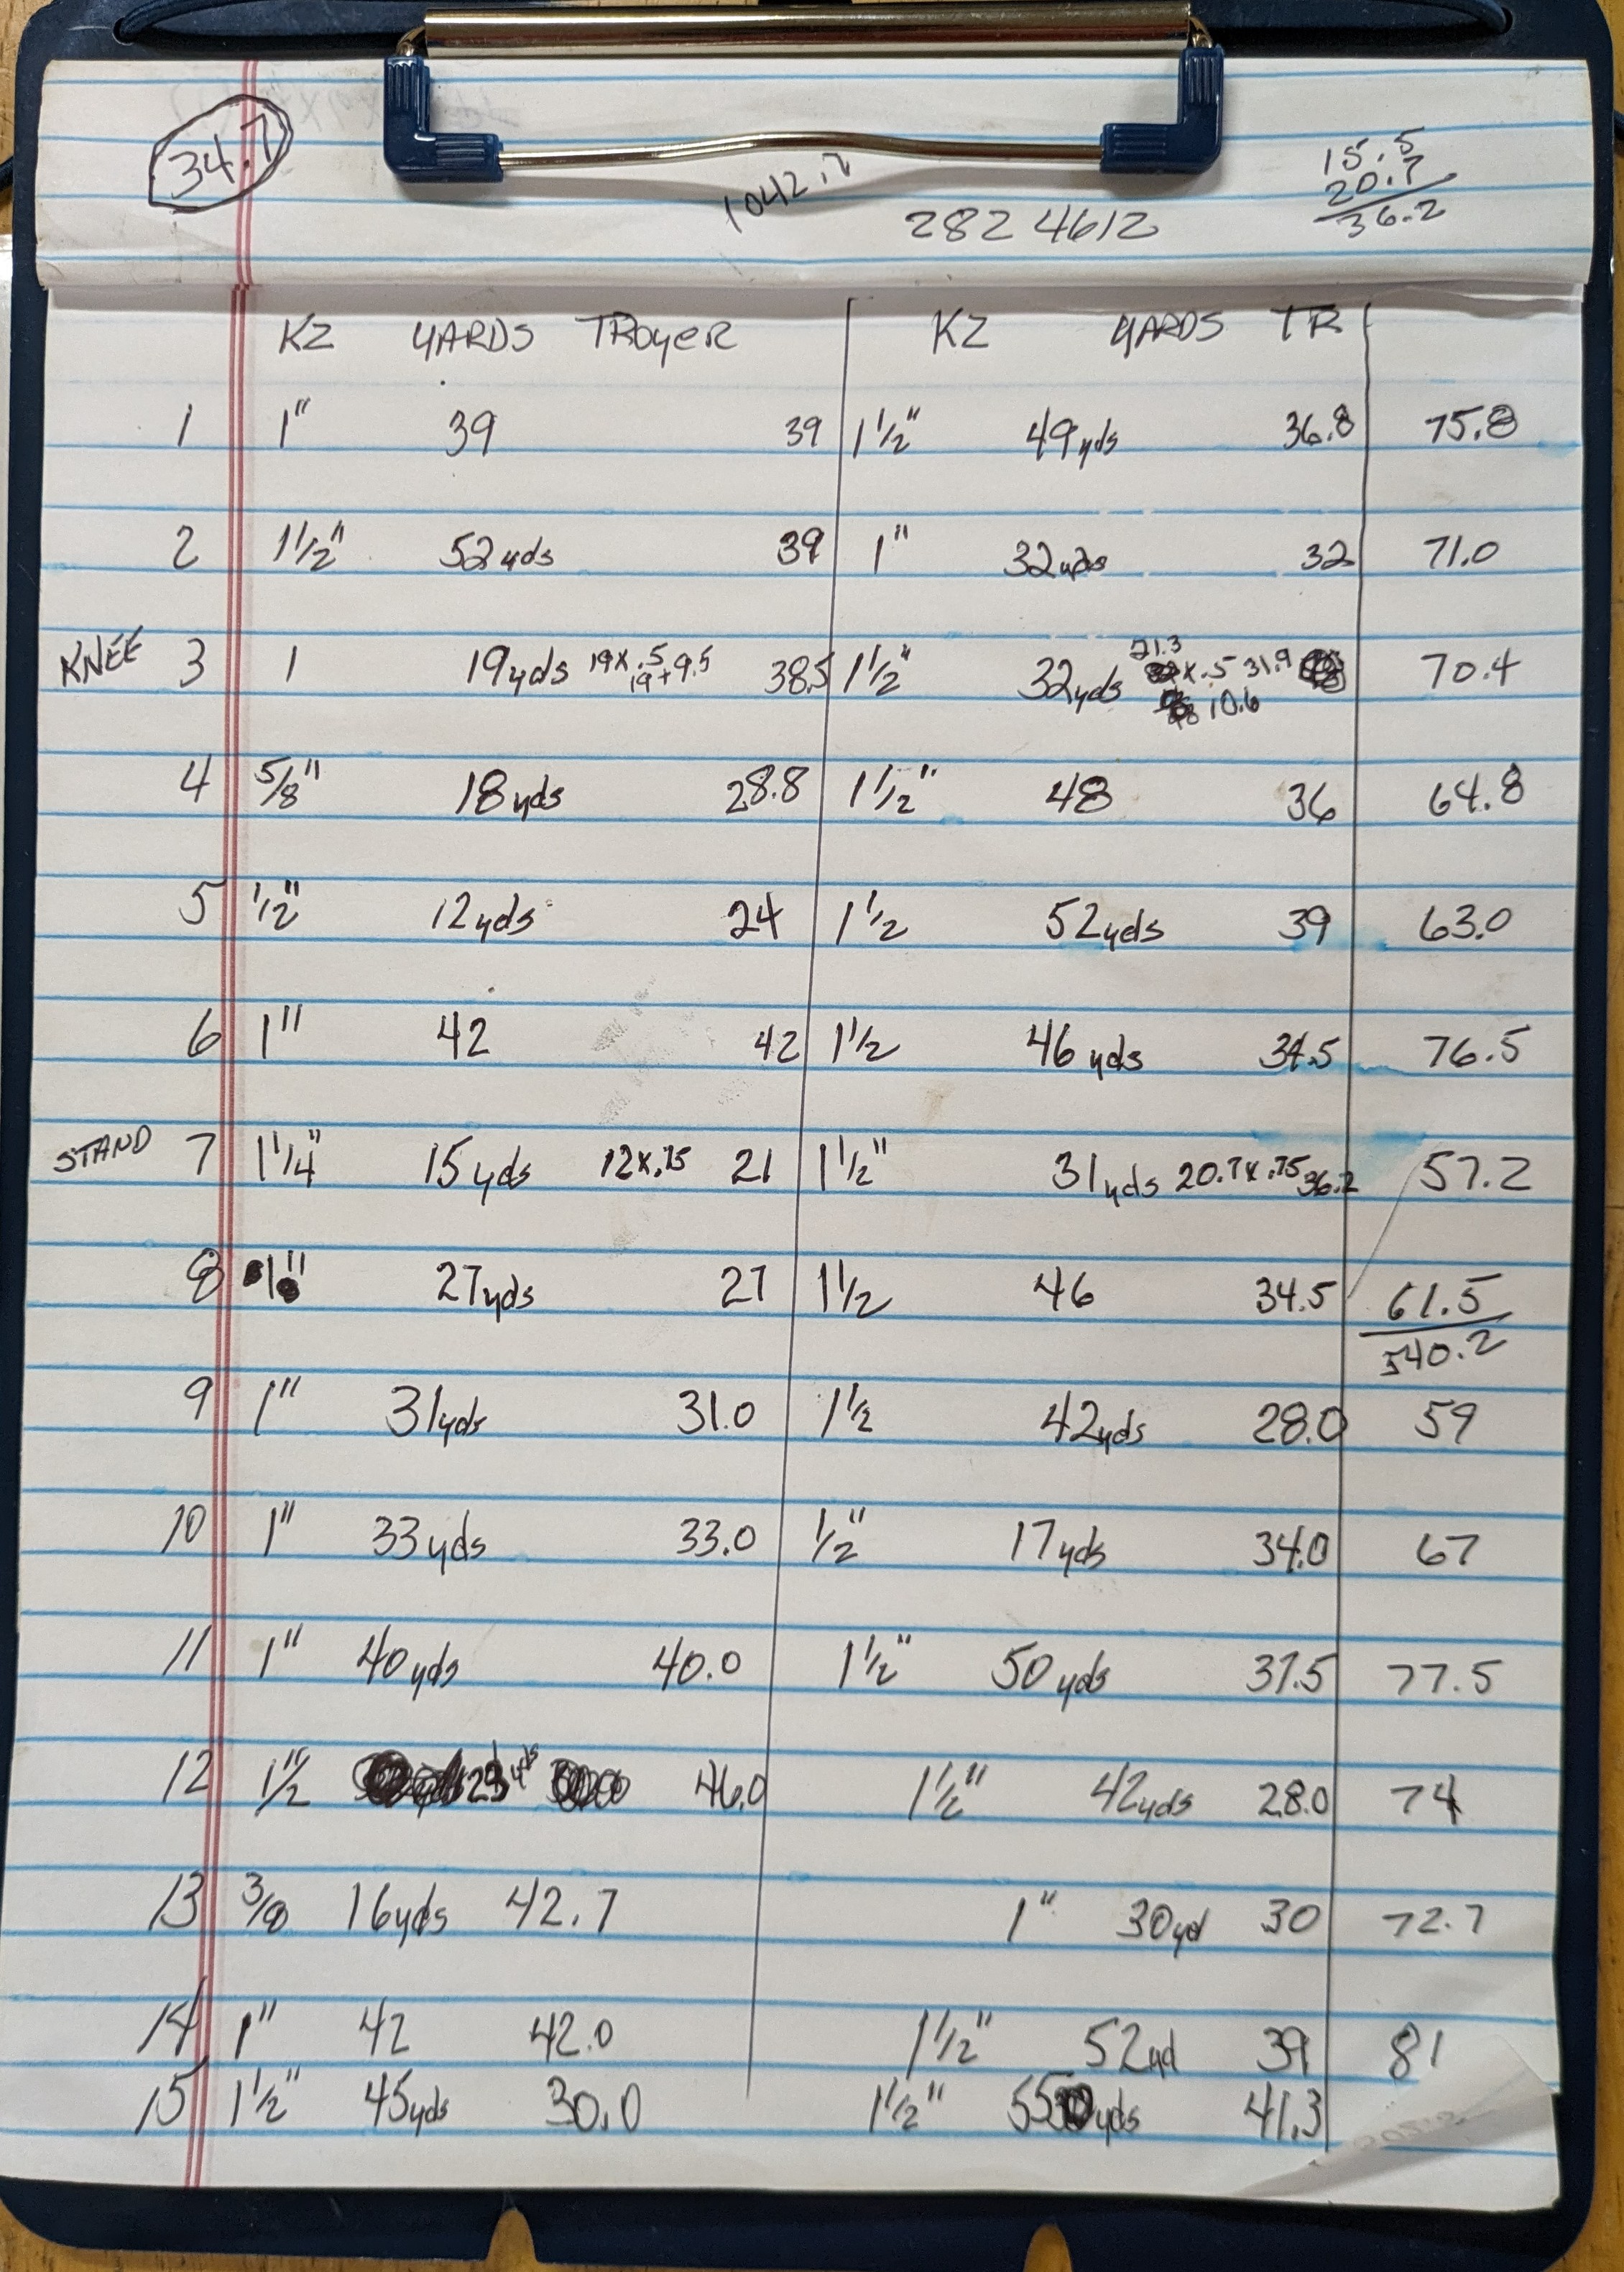 34.7
1042.7
2824612
15.5
20.7
36.2
KZ YARDS TROYER KZ YARDS TR
1 1" 39 39 1 1/2" 49yds 36.8 75.8
2 1 1/2" 52yds 39 1" 32yds 32 71.0
KNEE 3 1 19yds 19x.5 19+9.5 38.5 1 1/2" 32yds 21.3 x.5 31.9 10.6 70.4
4 5/8" 18yds 28.8 1 1/2" 48 36 64.8
5 1/2" 12yds 24 1 1/2 52yds 39 63.0
6 1" 42 42 1 1/2 46 yds 34.5 76.5
STAND 7 1 1/4" 15yds 12x.75 21 1 1/2" 31yds 20.7x.75 36.2 57.2
8 1" 27yds 27 1 1/2 46 34.5 61.5
540.2
9 1" 31yds 31.0 1 1/2 42yds 28.0 59
10 1" 33yds 33.0 1/2" 17yds 34.0 67
11 1" 40yds 40.0 1 1/2" 50yds 37.5 77.5
12 1 1/2" 23yds 46.0 1 1/2" 42yds 28.0 74
13 3/8 16yds 42.7 1" 30yd 30 72.7
14 1" 42 42.0 1 1/2" 52yd 39 81
15 1 1/2" 45yds 30.0 1 1/2" 55yds 41.3